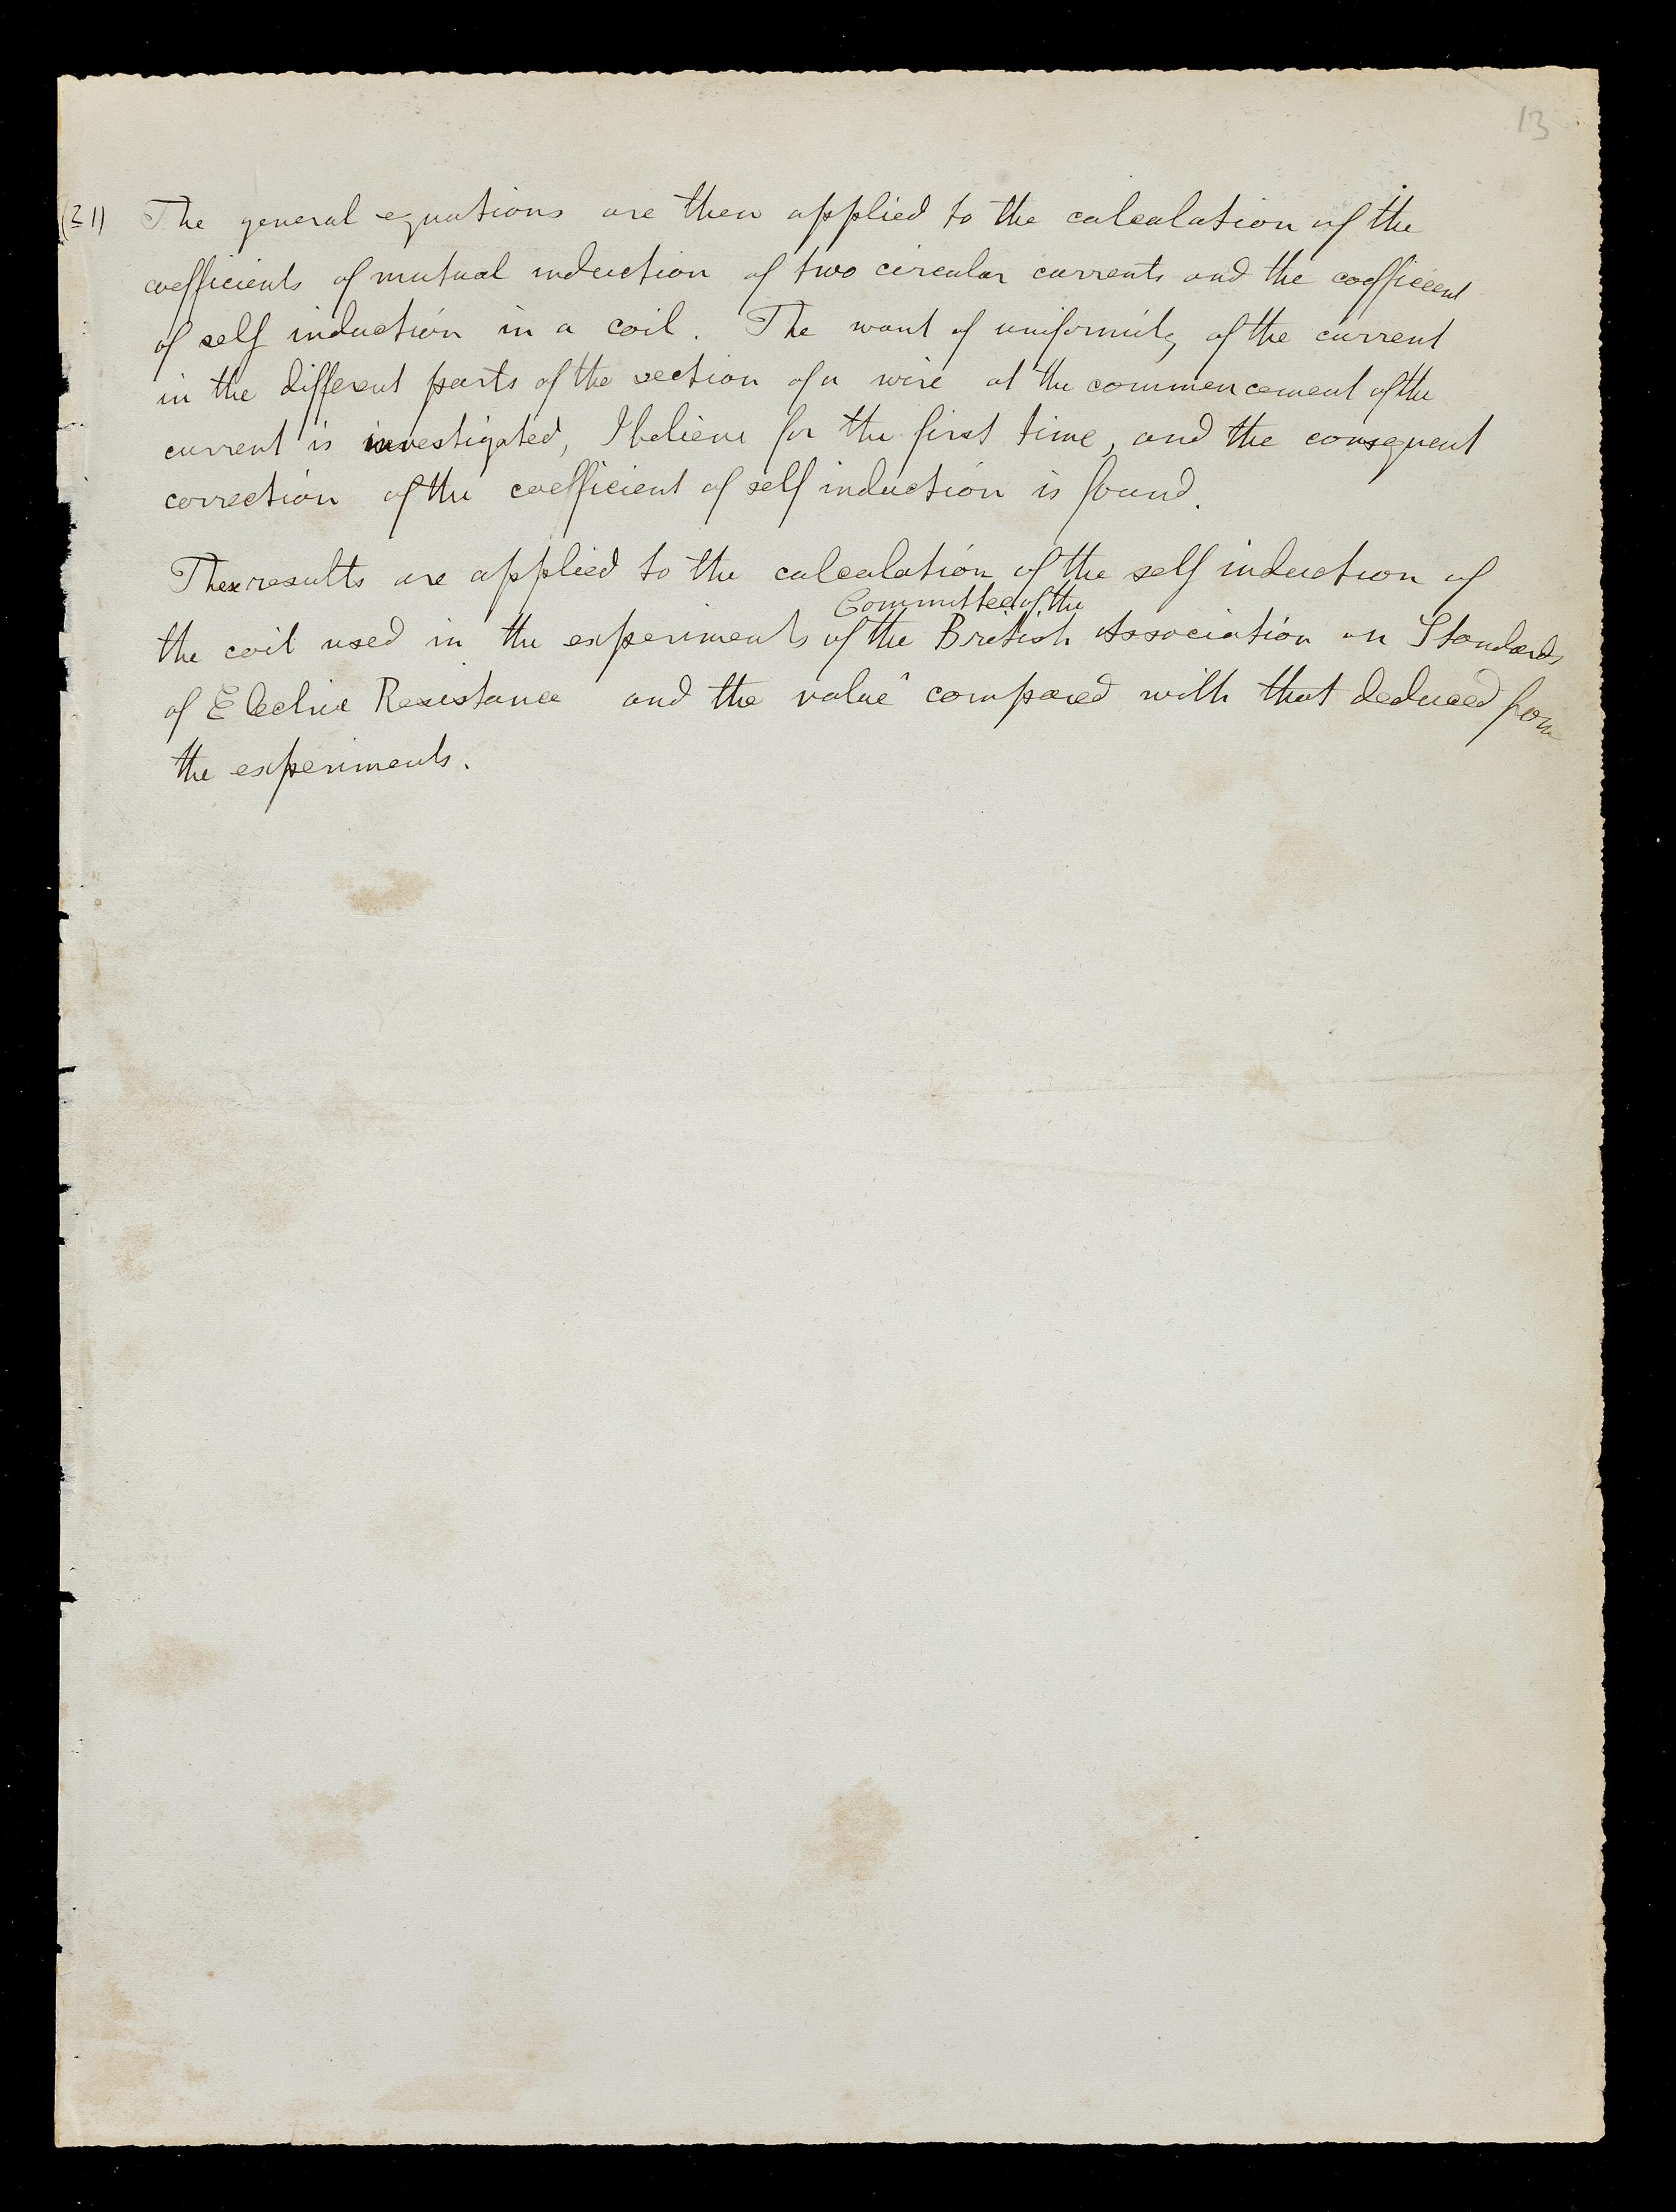 13
(21) The general equations are then applied to the calculation of the
coefficients of mutual induction of two circular currents and the coefficient
of self induction in a coil. The want of uniformity of the current
in the different parts of the section of a wire at the commencement of the
current is investigated, I believe for the first time, and the consequent
correction of the coefficient of self induction is found.
These results are applied to the calculation of the self induction of
Committee of the
the coil used in the experiments of the British Association on Standards
of Electric Resistance and the value compared with that deduced from
the experiments.